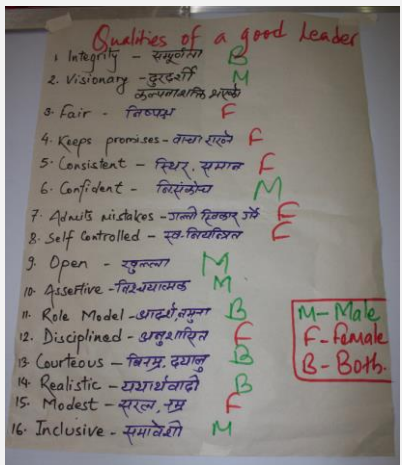 Qualities of a good Leader
1. Integrity - सम्पूर्णता B
2. Visionary - दुरदर्शी M
कल्पनाशक्ति भएको
3. Fair - निष्पक्ष F
4. Keeps promises - वाचा राख्ने F
5. Consistent - स्थिर, समान F
6. Confident - निसंकोच M
7. Admits mistakes - गल्ती स्विकार गर्ने F
8. Self Controlled - स्व-नियन्त्रित F
9. Open - खुल्ला M
10. Assertive - निश्चयात्मक M
11. Role Model - आदर्श, नमुना B
12. Disciplined - अनुशासित F
13. Courteous - विनम्र, दयालु B
14. Realistic - यथार्थवादी B
15. Modest - सरल, नम्र F
16. Inclusive - समावेशी M
M - Male
F - Female
B - Both.